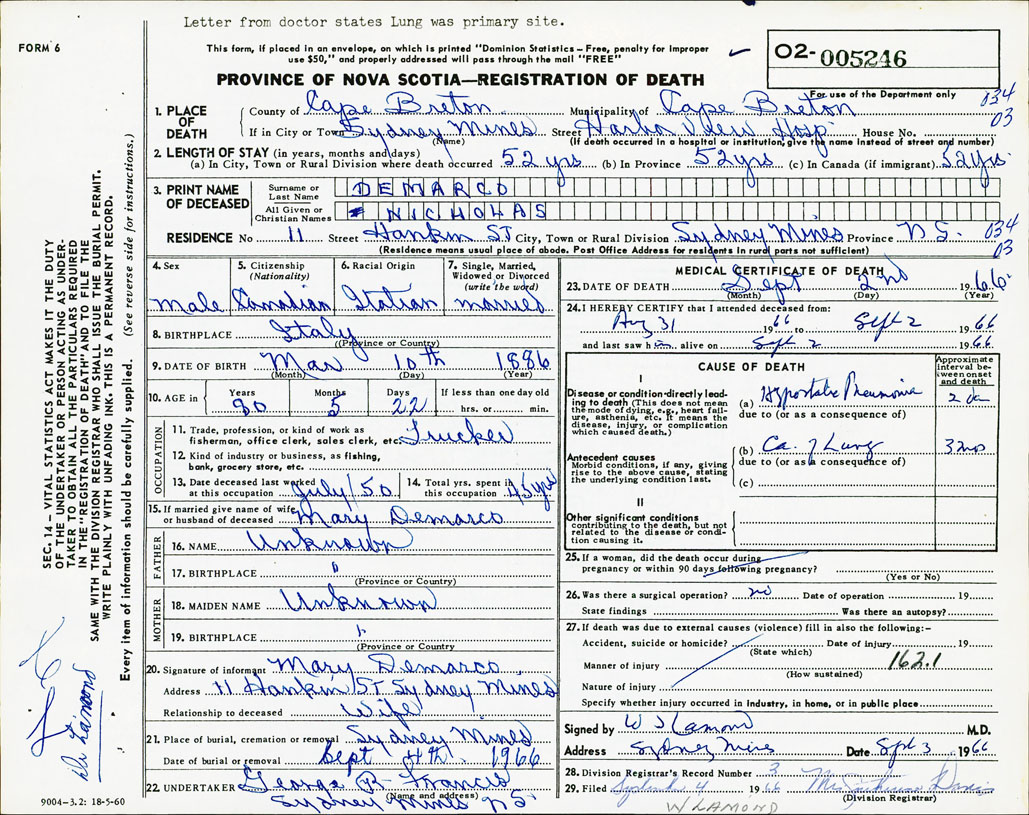 Letter from doctor states Lung was primary site.
FORM 6
This form, if placed in an envelope, on which is printed "Dominion Statistics - Free, penalty for improper
use $50," and properly addressed will pass through the mail "FREE"
02-005246
PROVINCE OF NOVA SCOTIA—REGISTRATION OF DEATH
For use of the Department only
034
03
1. PLACE OF DEATH
County of Cape Breton Municipality of Cape Breton
If in City or Town Sydney Mines Street Harbor View Hosp House No.
(Name) (If death occurred in a hospital or institution, give the name instead of street and number)
2. LENGTH OF STAY (in years, months and days)
(a) In City, Town or Rural Division where death occurred 52 yrs (b) In Province 52 yrs (c) In Canada (if immigrant) 52 yrs.
3. PRINT NAME OF DECEASED
Surname or Last Name DEMARCO
All Given or Christian Names NICHOLAS
RESIDENCE No 11 Street Hankin ST City, Town or Rural Division Sydney Mines Province N.S. 034
03
(Residence means usual place of abode. Post Office Address for residents in rural parts not sufficient)
4. Sex
Male
5. Citizenship
(Nationality)
Canadian
6. Racial Origin
Italian
7. Single, Married,
Widowed or Divorced
(write the word)
married
8. BIRTHPLACE Italy
(Province or Country)
9. DATE OF BIRTH Mar 10th 1886
(Month) (Day) (Year)
10. AGE in Years 80 Months 5 Days 22 If less than one day old
hrs. or min.
OCCUPATION
11. Trade, profession, or kind of work as
fisherman, office clerk, sales clerk, etc. Trucker
12. Kind of industry or business, as fishing,
bank, grocery store, etc.
13. Date deceased last worked
at this occupation July/50
14. Total yrs. spent in
this occupation 45 yrs
15. If married give name of wife
or husband of deceased Mary Demarco
FATHER
16. NAME Unknown
17. BIRTHPLACE "
(Province or Country)
MOTHER
18. MAIDEN NAME Unknown
19. BIRTHPLACE "
(Province or Country
20. Signature of informant Mary Demarco
Address 11 Hankin ST Sydney Mines
Relationship to deceased Wife
21. Place of burial, cremation or removal Sydney Mines
Date of burial or removal Sept 4th 1966
22. UNDERTAKER George R. Francis
(Name and address)
Sydney Mines N.S.
MEDICAL CERTIFICATE OF DEATH
23. DATE OF DEATH Sept 2nd 1966
(Month) (Day) (Year)
24. I HEREBY CERTIFY that I attended deceased from:
Aug 31 1966 to Sept 2 1966
and last saw him alive on Sept 2 1966
CAUSE OF DEATH
Approximate
interval be-
tween onset
and death
I
Disease or condition directly lead-
ing to death (This does not mean
the mode of dying, e.g., heart fail-
ure, asthenia, etc. It means the
disease, injury, or complication
which caused death.)
(a) Hypostatic Pneumonia 2 da
due to (or as a consequence of)
Antecedent causes
Morbid conditions, if any, giving
rise to the above cause, stating
the underlying condition last.
(b) Ca. of Lung 3 mos
due to (or as a consequence of
(c)
II
Other significant conditions
contributing to the death, but not
related to the disease or condi-
tion causing it.
25. If a woman, did the death occur during
pregnancy or within 90 days following pregnancy?
(Yes or No)
26. Was there a surgical operation? no Date of operation 19
State findings Was there an autopsy?
27. If death was due to external causes (violence) fill in also the following:-
Accident, suicide or homicide? Date of injury 19
(State which)
Manner of injury 162.1
(How sustained)
Nature of injury
Specify whether injury occurred in Industry, in home, or in public place
Signed by W S Lamond M.D.
Address Sydney Mines Date Sept 3 1966
28. Division Registrar's Record Number 3
29. Filed September 4 1966 Mrs. Davis
(Division Registrar)
W LAMOND
SEC. 14 - VITAL STATISTICS ACT MAKES IT THE DUTY
OF THE UNDERTAKER OR PERSON ACTING AS UNDER-
TAKER TO OBTAIN ALL THE PARTICULARS REQUIRED
IN THE "REGISTRATION OF DEATH" AND TO FILE THE
SAME WITH THE DIVISION REGISTRAR WHO SHALL ISSUE THE BURIAL PERMIT.
WRITE PLAINLY WITH UNFADING INK. THIS IS A PERMANENT RECORD.
Every item of information should be carefully supplied. (See reverse side for instructions.)
Dr Lamond
9004-3.2: 18-5-60